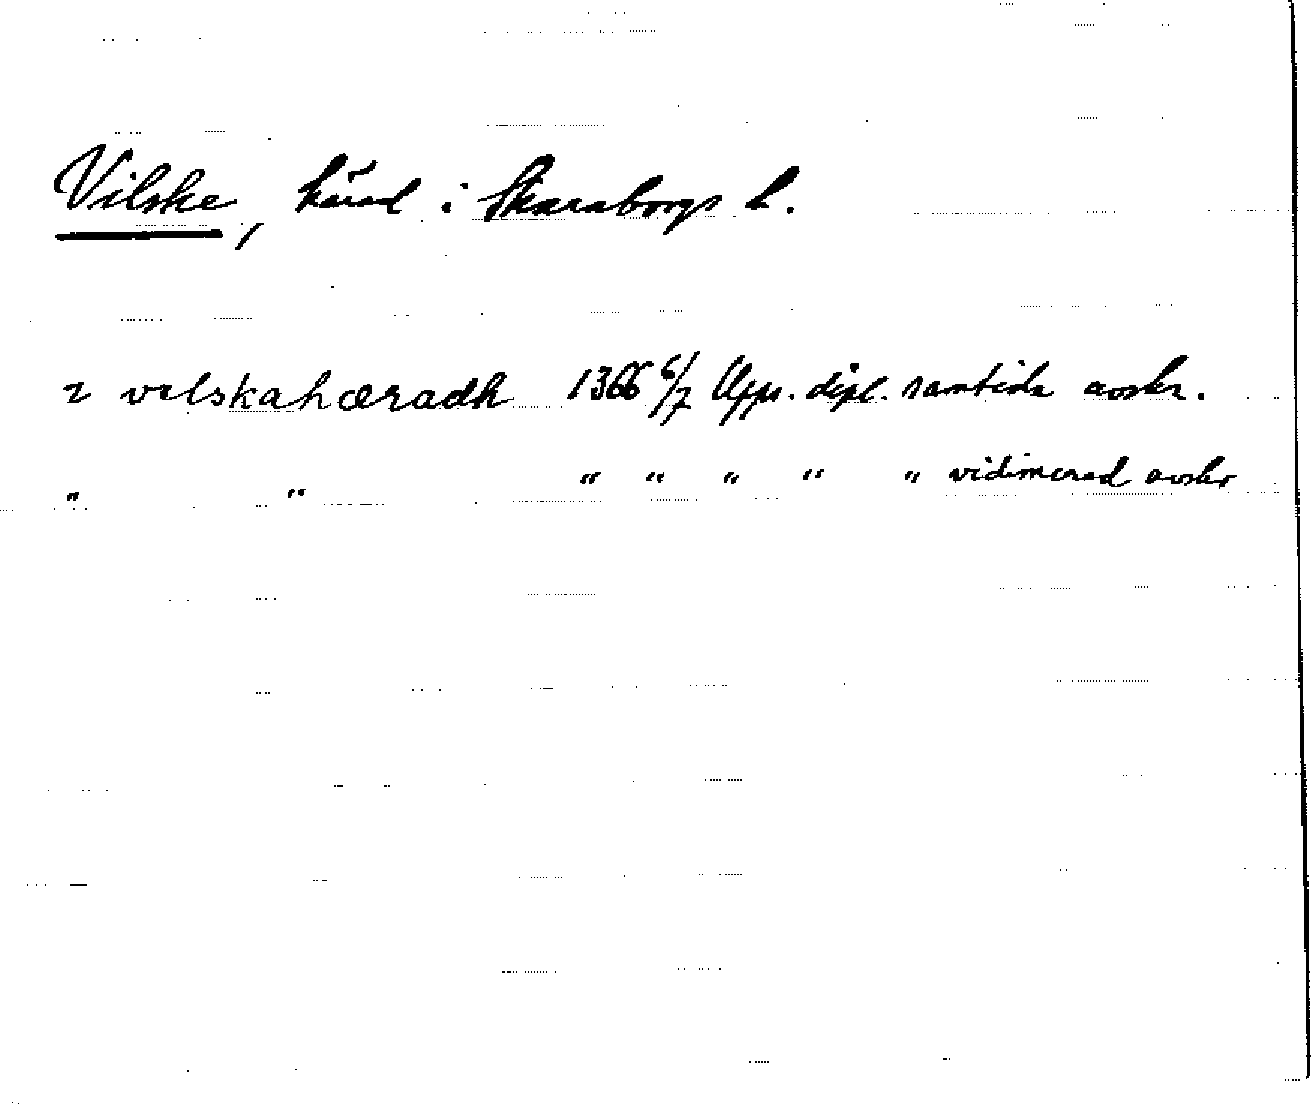 Vilske, härad i Skaraborgs l.
ɩ velskahæradh 1366 6/7 Upps. dipl. samtida avskr.
" " " " " " " vidimerad avskr